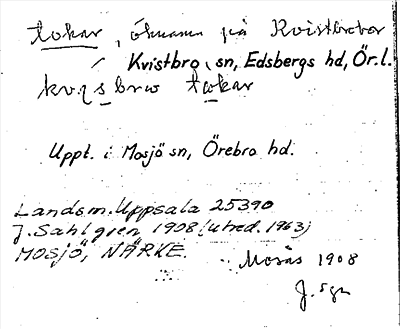 tokar, öknamn på Kvistbrobor
Kvistbro sn, Edsbergs hd, Ör. l.
tokar
Uppt. i Mosjö sn, Örebro hd.
Landsm. Uppsala 25390
J. Sahlgren 1908 (utred. 1963)
MOSJÖ, NÄRKE.
Mosås 1908
J. Sgn